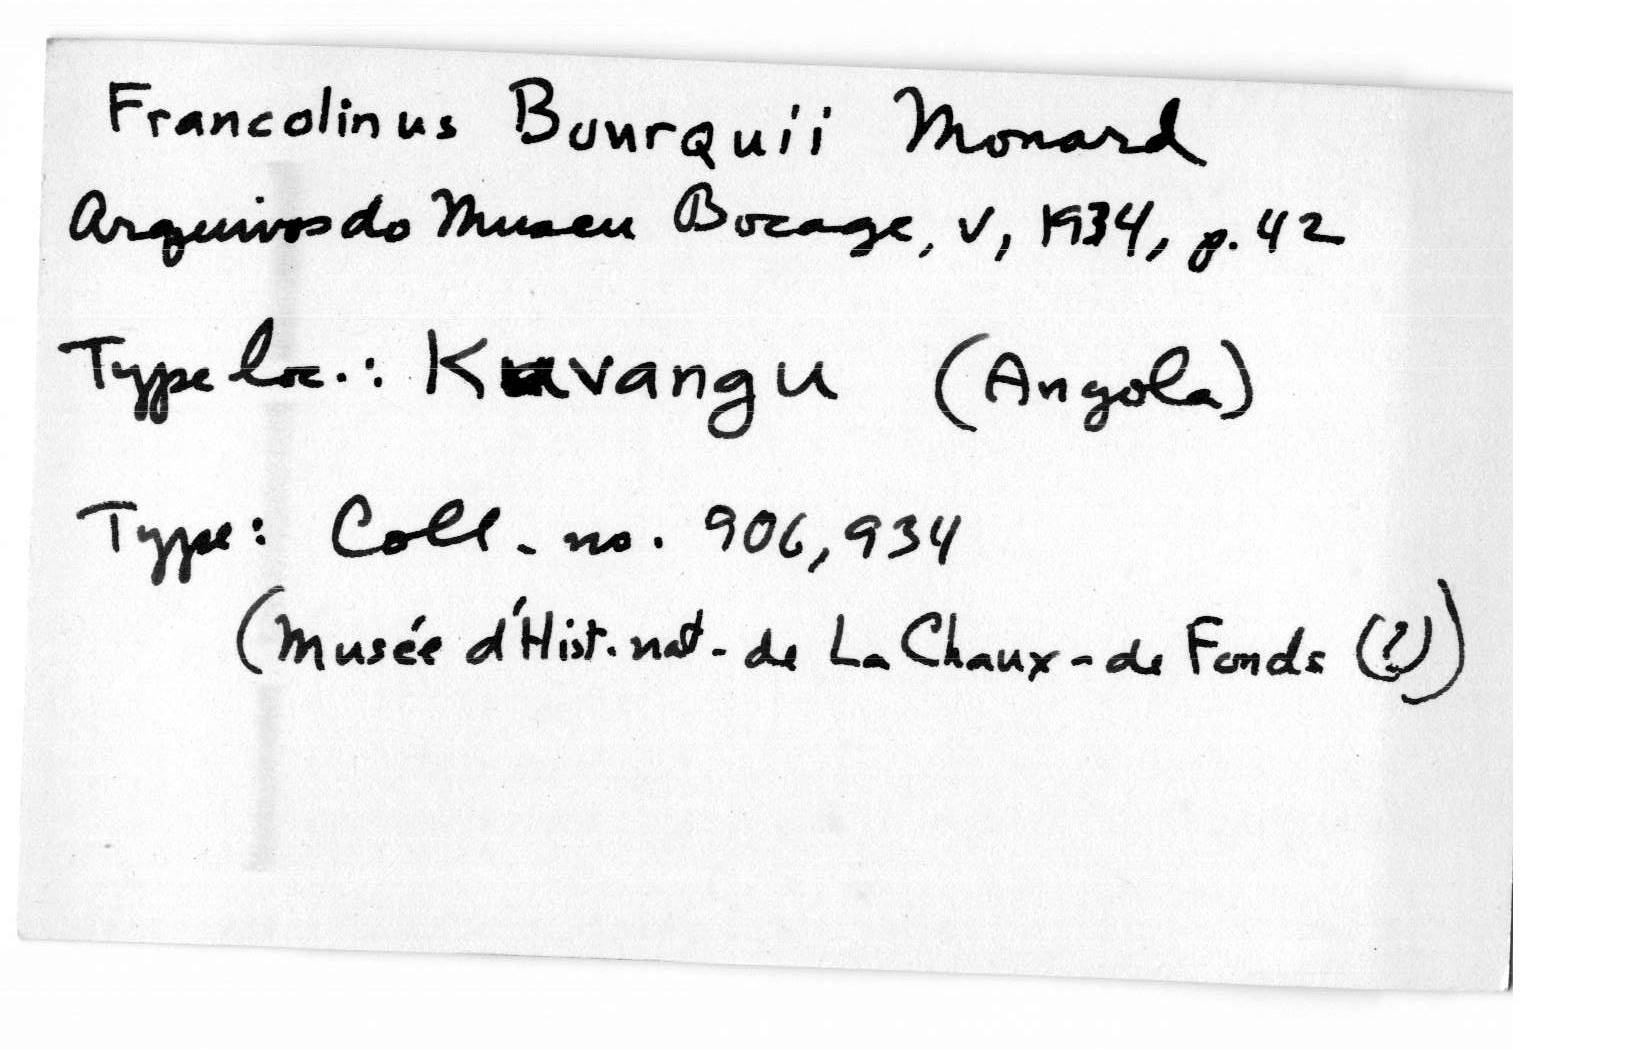 Francolinus Bourquii Monard
Arquivos do Museu Bocage, V, 1934, p. 42
Type loc.: Kuvangu (Angola)
Type: Coll. no. 906,934
(Musée d'Hist. nat. de La Chaux-de Fonds (?))